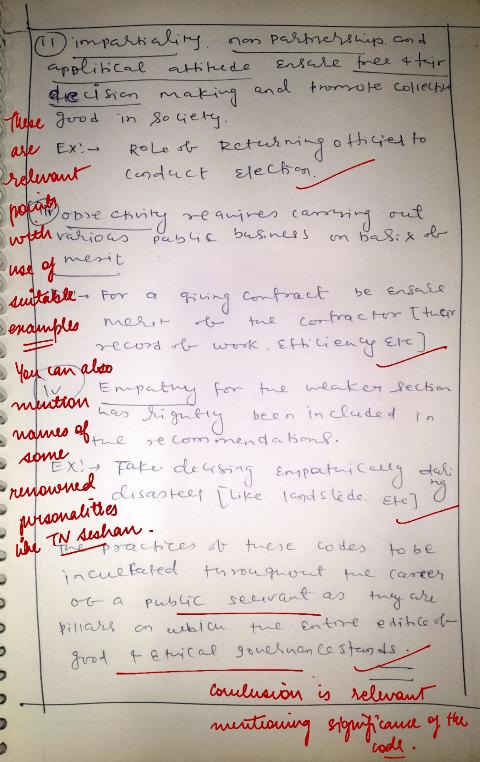 (ii) impartiality, non partnership and
appolitical attitude ensure free & fair
decision making and promote collective
good in society.
Ex:→ Role ob Returning officies to
conduct election.
(iii) objectivity requires carrying out
various public business on basis ob
merit
→ For a giving contract be ensure
merit ob the contractor [their
record ob work. Efficiency etc]
iv Empathy for the weaker section
has rightly been included in
the recommendations.
EX:→ Take decising empathically during
disasters [like landslede etc]
The practices ob these codes to be
inculcated throughout the career
ob a public servant as they are
pillars on which the entire edifice ob
good & ethical governance stands.
These
are
relevant
points
with
use of
suitable
examples
You can also
mention
names of
some
renowned
personalities
like TN Seshan.
Conclusion is relevant
mentioning significance of the
code.